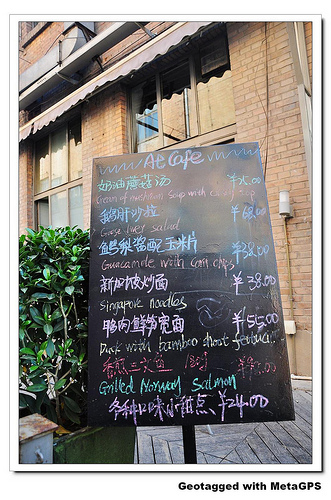 At Cafe
奶油蘑菇汤 ¥35.00
Cream of mushroom Soup with
鹅肝沙拉 ¥68.00
Goose liver salad
鳄梨酱配玉米片 ¥38.00
Guacamole with corn chips
新加坡炒面 ¥38.00
Singapore noodles
鸭肉鲜笋宽面 ¥55.00
Duck with bamboo shoot fettucini
香煎三文鱼
Grilled Norway Salmon
各种口味小甜点、¥24.00
Geotagged with MetaGPS